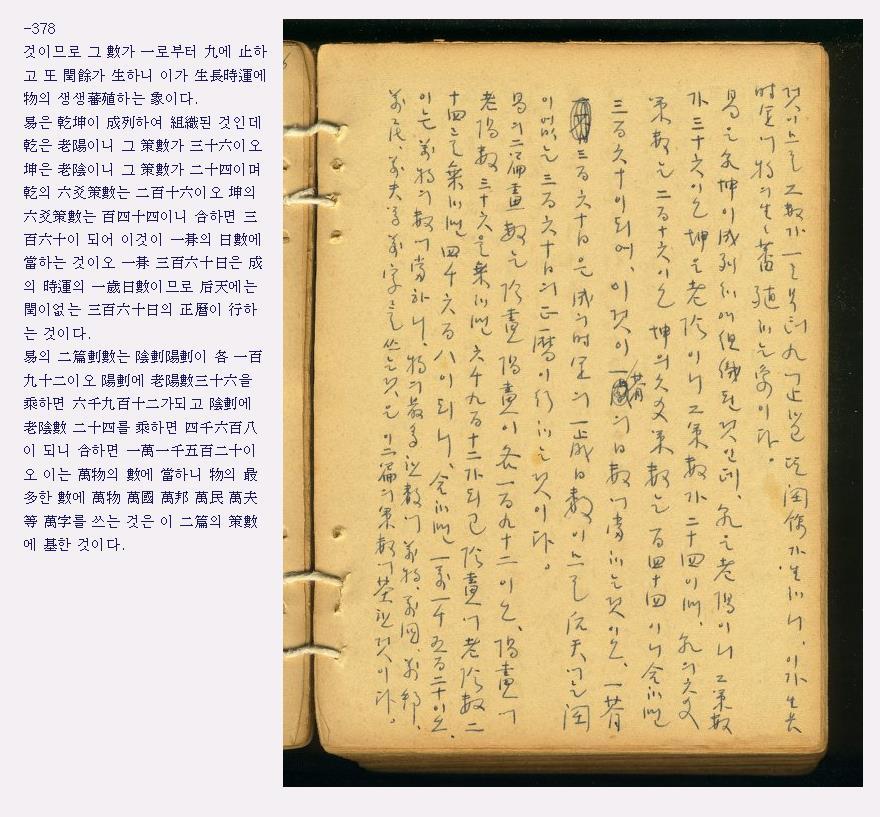 -378
것이므로 그 數가 一로부터 九에 止하
고 또 閏餘가 生하니 이가 生長時運에
物의 생생蕃殖하는 象이다.
易은 乾坤이 成列하여 組織된 것인데
乾은 老陽이니 그 策數가 三十六이오
坤은 老陰이니 그 策數가 二十四이며
乾의 六爻策數는 二百十六이오 坤의
六爻策數는 百四十四이니 合하면 三
百六十이 되어 이것이 一朞의 日數에
當하는 것이오 一朞 三百六十日은 成
의 時運의 一歲日數이므로 后天에는
閏이없는 三百六十日의 正曆이 行하
는 것이다.
易의 二篇劃數는 陰劃陽劃이 各 一百
九十二이오 陽劃에 老陽數三十六을
乘하면 六千九百十二가되고 陰劃에
老陰數 二十四를 乘하면 四千六百八
이 되니 合하면 一萬一千五百二十이
오 이는 萬物의 數에 當하니 物의 最
多한 數에 萬物 萬國 萬邦 萬民 萬夫
等 萬字를 쓰는 것은 이 二篇의 策數
에 基한 것이다.
것이므로 그 數가 一로부터 九에 止하고 또 閏餘가 生하니, 이가 生長
時運에 物의 生々蕃殖하는 象이다.
易은 乾坤이 成列하여 組織된 것인데, 乾은 老陽이니 그 策數
가 三十六이오 坤은 老陰이니 그 策數가 二十四이며, 乾의 六爻
策數는 二百十六이오 坤의 六爻策數는 百四十四이니 合하면
三百六十이 되어, 이것이 一朞의 日數에 當하는 것이오, 一朞
三百六十日은 成의 時運의 一歲日數이므로 后天에는 閏
이 없는 三百六十日의 正曆이 行하는 것이다.
易의 二篇畫數는 陰畫陽畫이 各 一百九十二이오, 陽畫에
老陽數 三十六을 乘하면 六千九百十二가 되고 陰畫에 老陰數 二
十四를 乘하면 四千六百八이 되니, 合하면 一萬一千五百二十이오,
이는 萬物의 數에 當하니, 物의 最多한 數에 萬物, 萬國, 萬邦,
萬民, 萬夫等 萬字를 쓰는 것은 이 二篇의 策數에 基한 것이다.